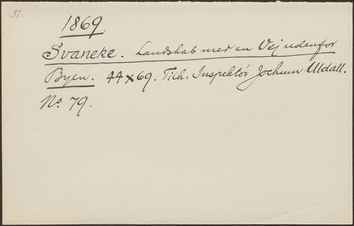 37.
1869
Svaneke. Landskab med en Vej udenfor
Byen. 44x69. Tilh. Inspektör Jochum Uldall.
No 79.